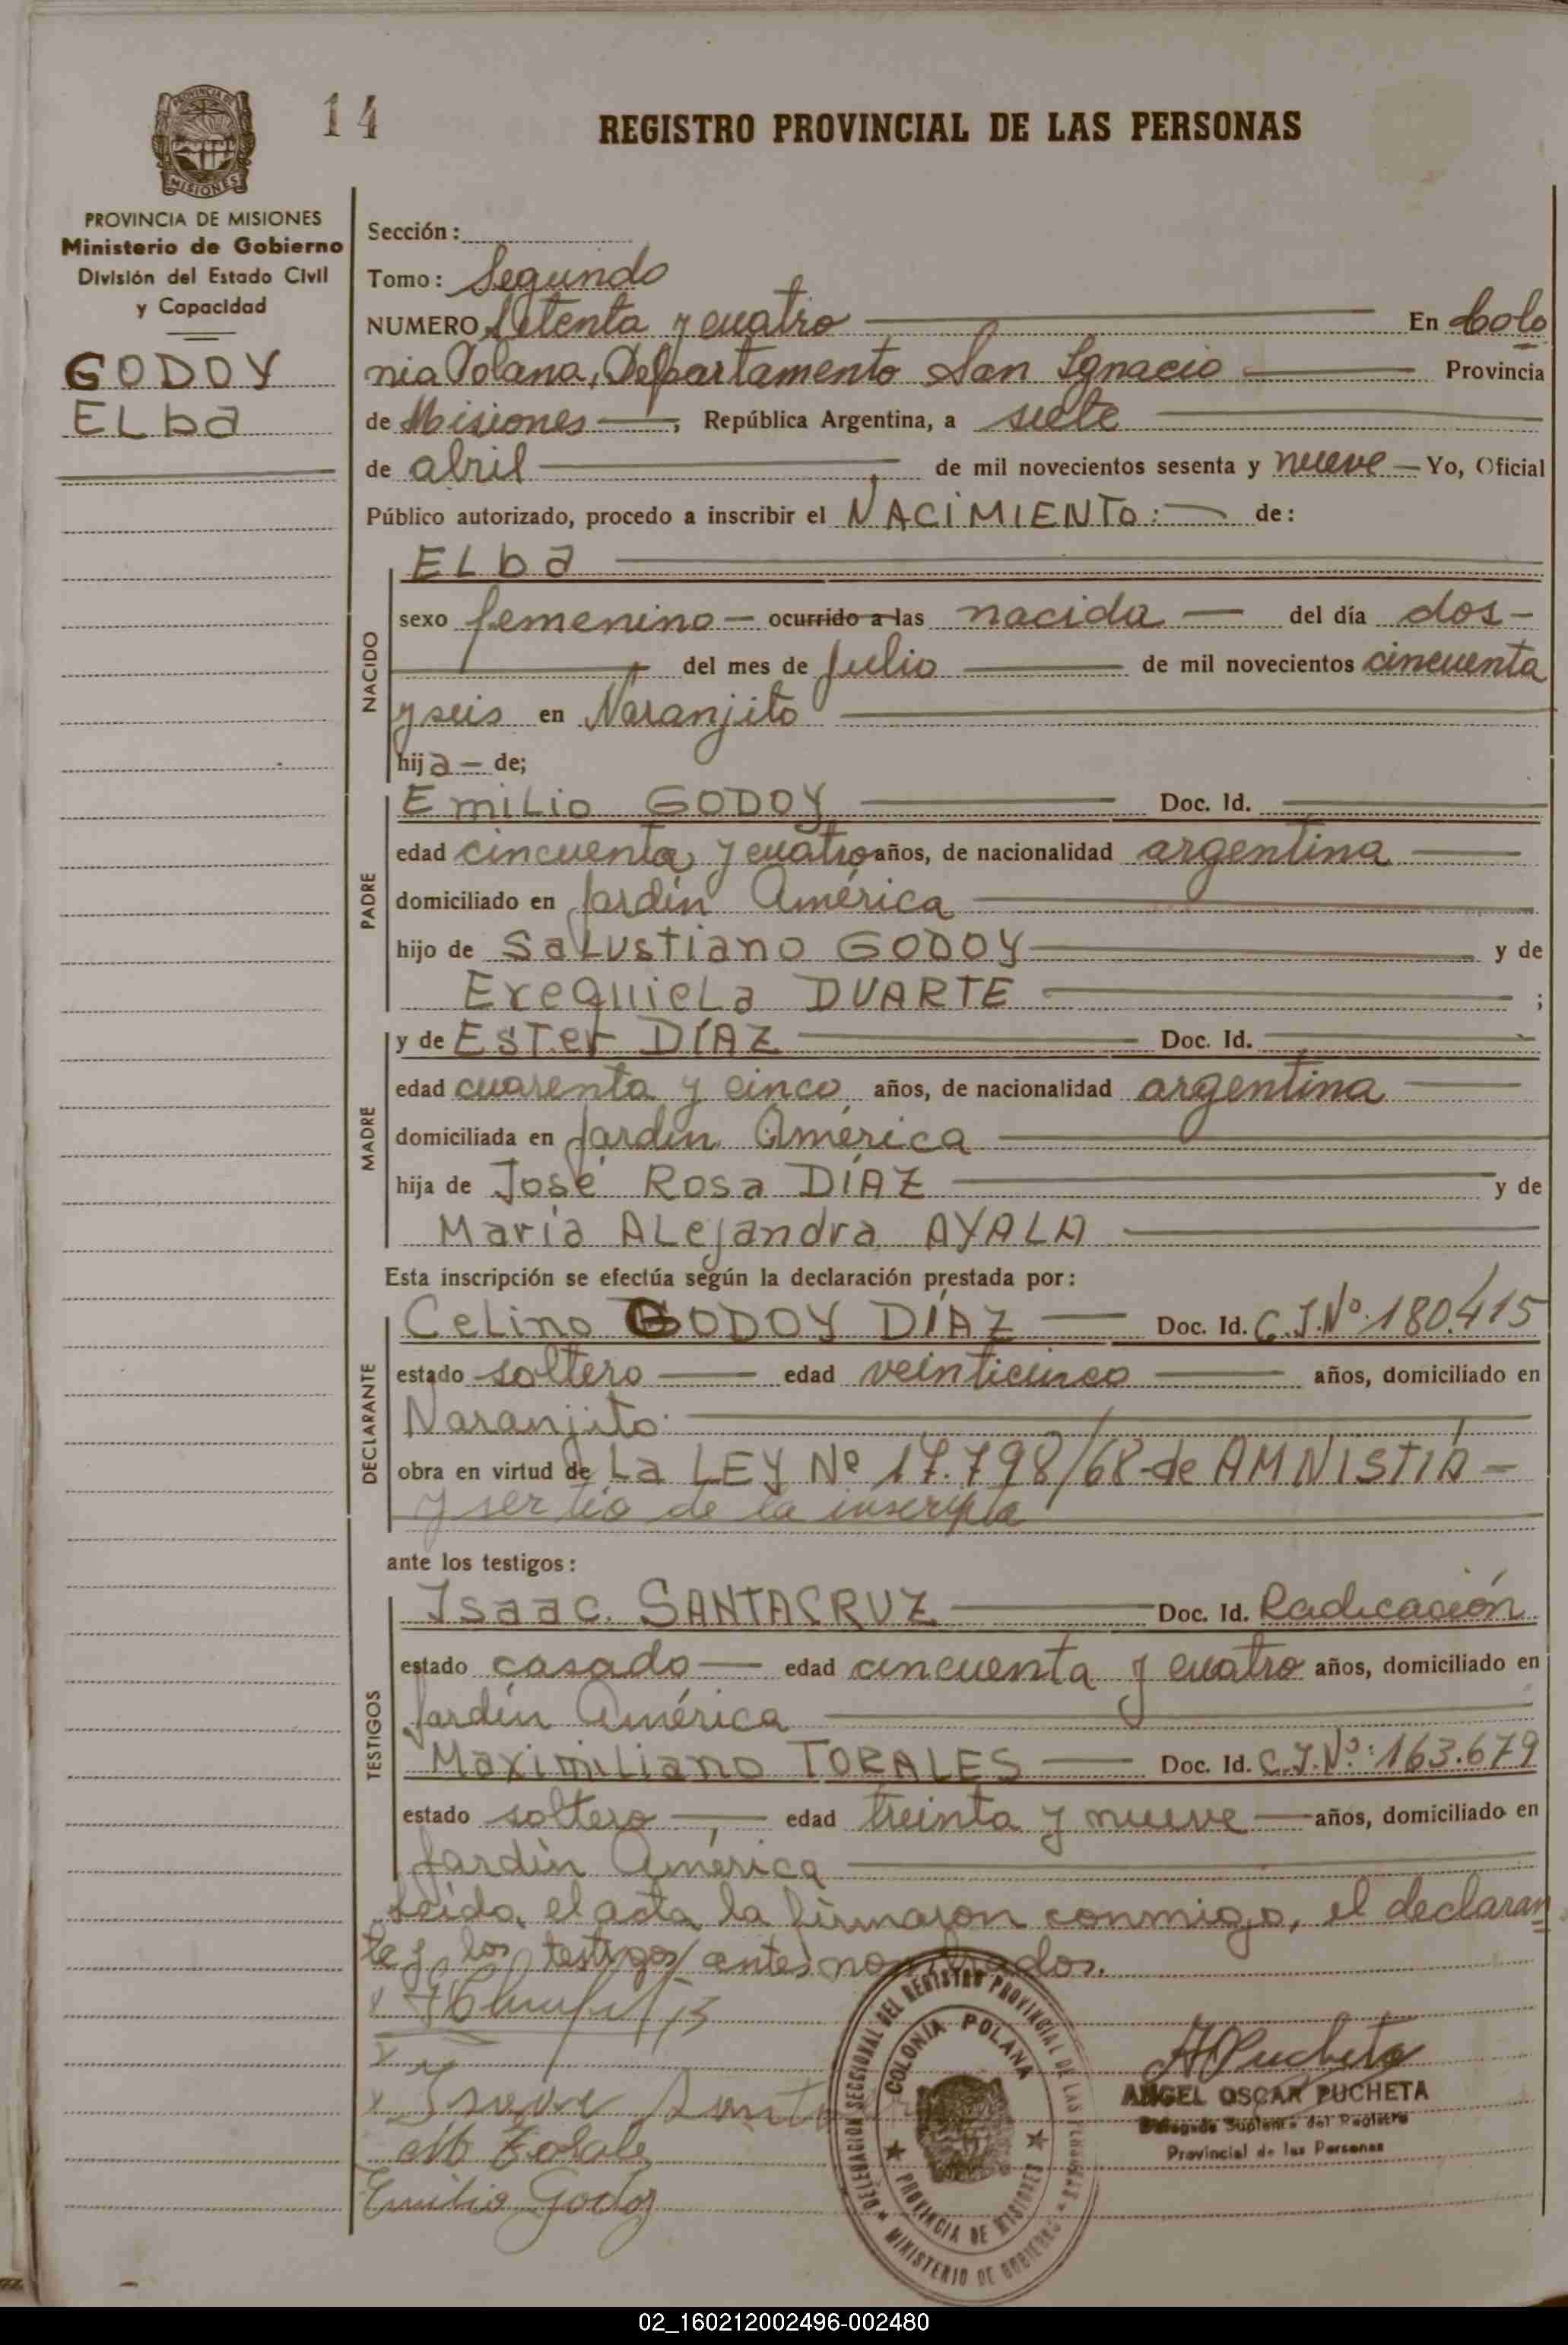 14
REGISTRO PROVINCIAL DE LAS PERSONAS
PROVINCIA DE
MISIONES
PROVINCIA DE MISIONES
Ministerio de Gobierno
División del Estado Civil
y Capacidad
GODOY
ELba
Sección:
Tomo: Segundo
NUMERO Setenta y cuatro En Colo
nia Polana, Departamento San Ignacio Provincia
de Misiones, República Argentina, a siete
de abril de mil novecientos sesenta y nueve Yo, Oficial
Público autorizado, procedo a inscribir el NACIMIENTO: de:
NACIDO
ELba
sexo femenino ocurrido a las nacida del día dos
del mes de Julio de mil novecientos cincuenta
y seis en Naranjito
hija de;
PADRE
Emilio GODOY Doc. Id.
edad cincuenta y cuatro años, de nacionalidad argentina
domiciliado en Jardín América
hijo de Salustiano GODOY y de
Exequiela DUARTE ;
MADRE
y de Ester DÍAZ Doc. Id.
edad cuarenta y cinco años, de nacionalidad argentina
domiciliada en Jardín América
hija de José Rosa DÍAZ y de
María ALejandra AYALA
Esta inscripción se efectúa según la declaración prestada por:
DECLARANTE
Celino GODOY DÍAZ Doc. Id. C.I.Nº: 180.415
estado soltero edad veinticinco años, domiciliado en
Naranjito
obra en virtud de La LEY Nº 17.798/68 de AMNISTIA
y ser tío de la inscripta
ante los testigos:
TESTIGOS
Isaac SANTACRUZ Doc. Id. Radicación
estado casado edad cincuenta y cuatro años, domiciliado en
Jardín América
Maximiliano TORALES Doc. Id. C.I.Nº: 163.679
estado soltero, edad treinta y nueve años, domiciliado en
Jardín América
Leída el acta la firmaron conmigo, el declaran
te y los testigos antes nombrados.
M Torales
Emilio Godoy
DELEGACION SECCIONAL DEL REGISTRO PROVINCIAL DE LAS PERSONAS
MINISTERIO DE GOBIERNO
COLONIA POLANA
PROVINCIA DE MISIONES
APucheta
ANGEL OSCAR PUCHETA
Delegado Suplente del Registro
Provincial de las Personas
02_160212002496-002480